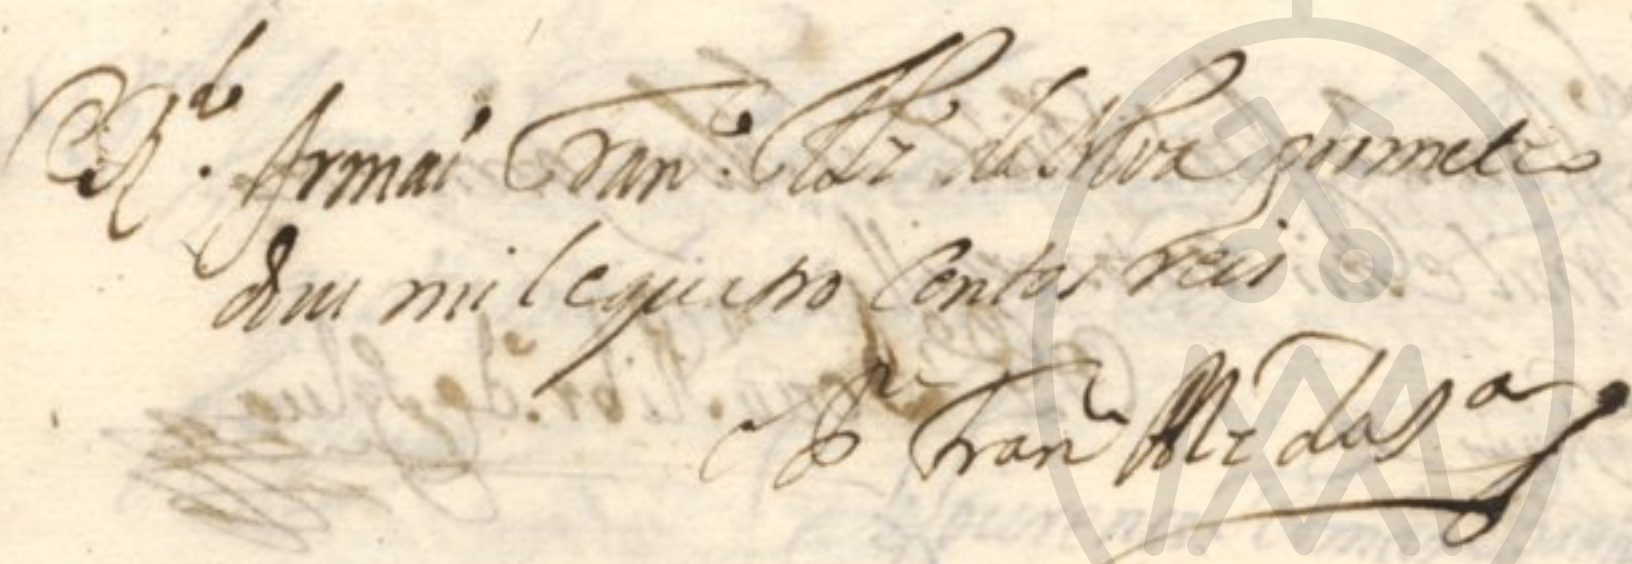 R.do Irmaõ Fran.co Alz da Silva prometeo
dous mil e quatro centos reis
P.e Fran.co Alz da S.a